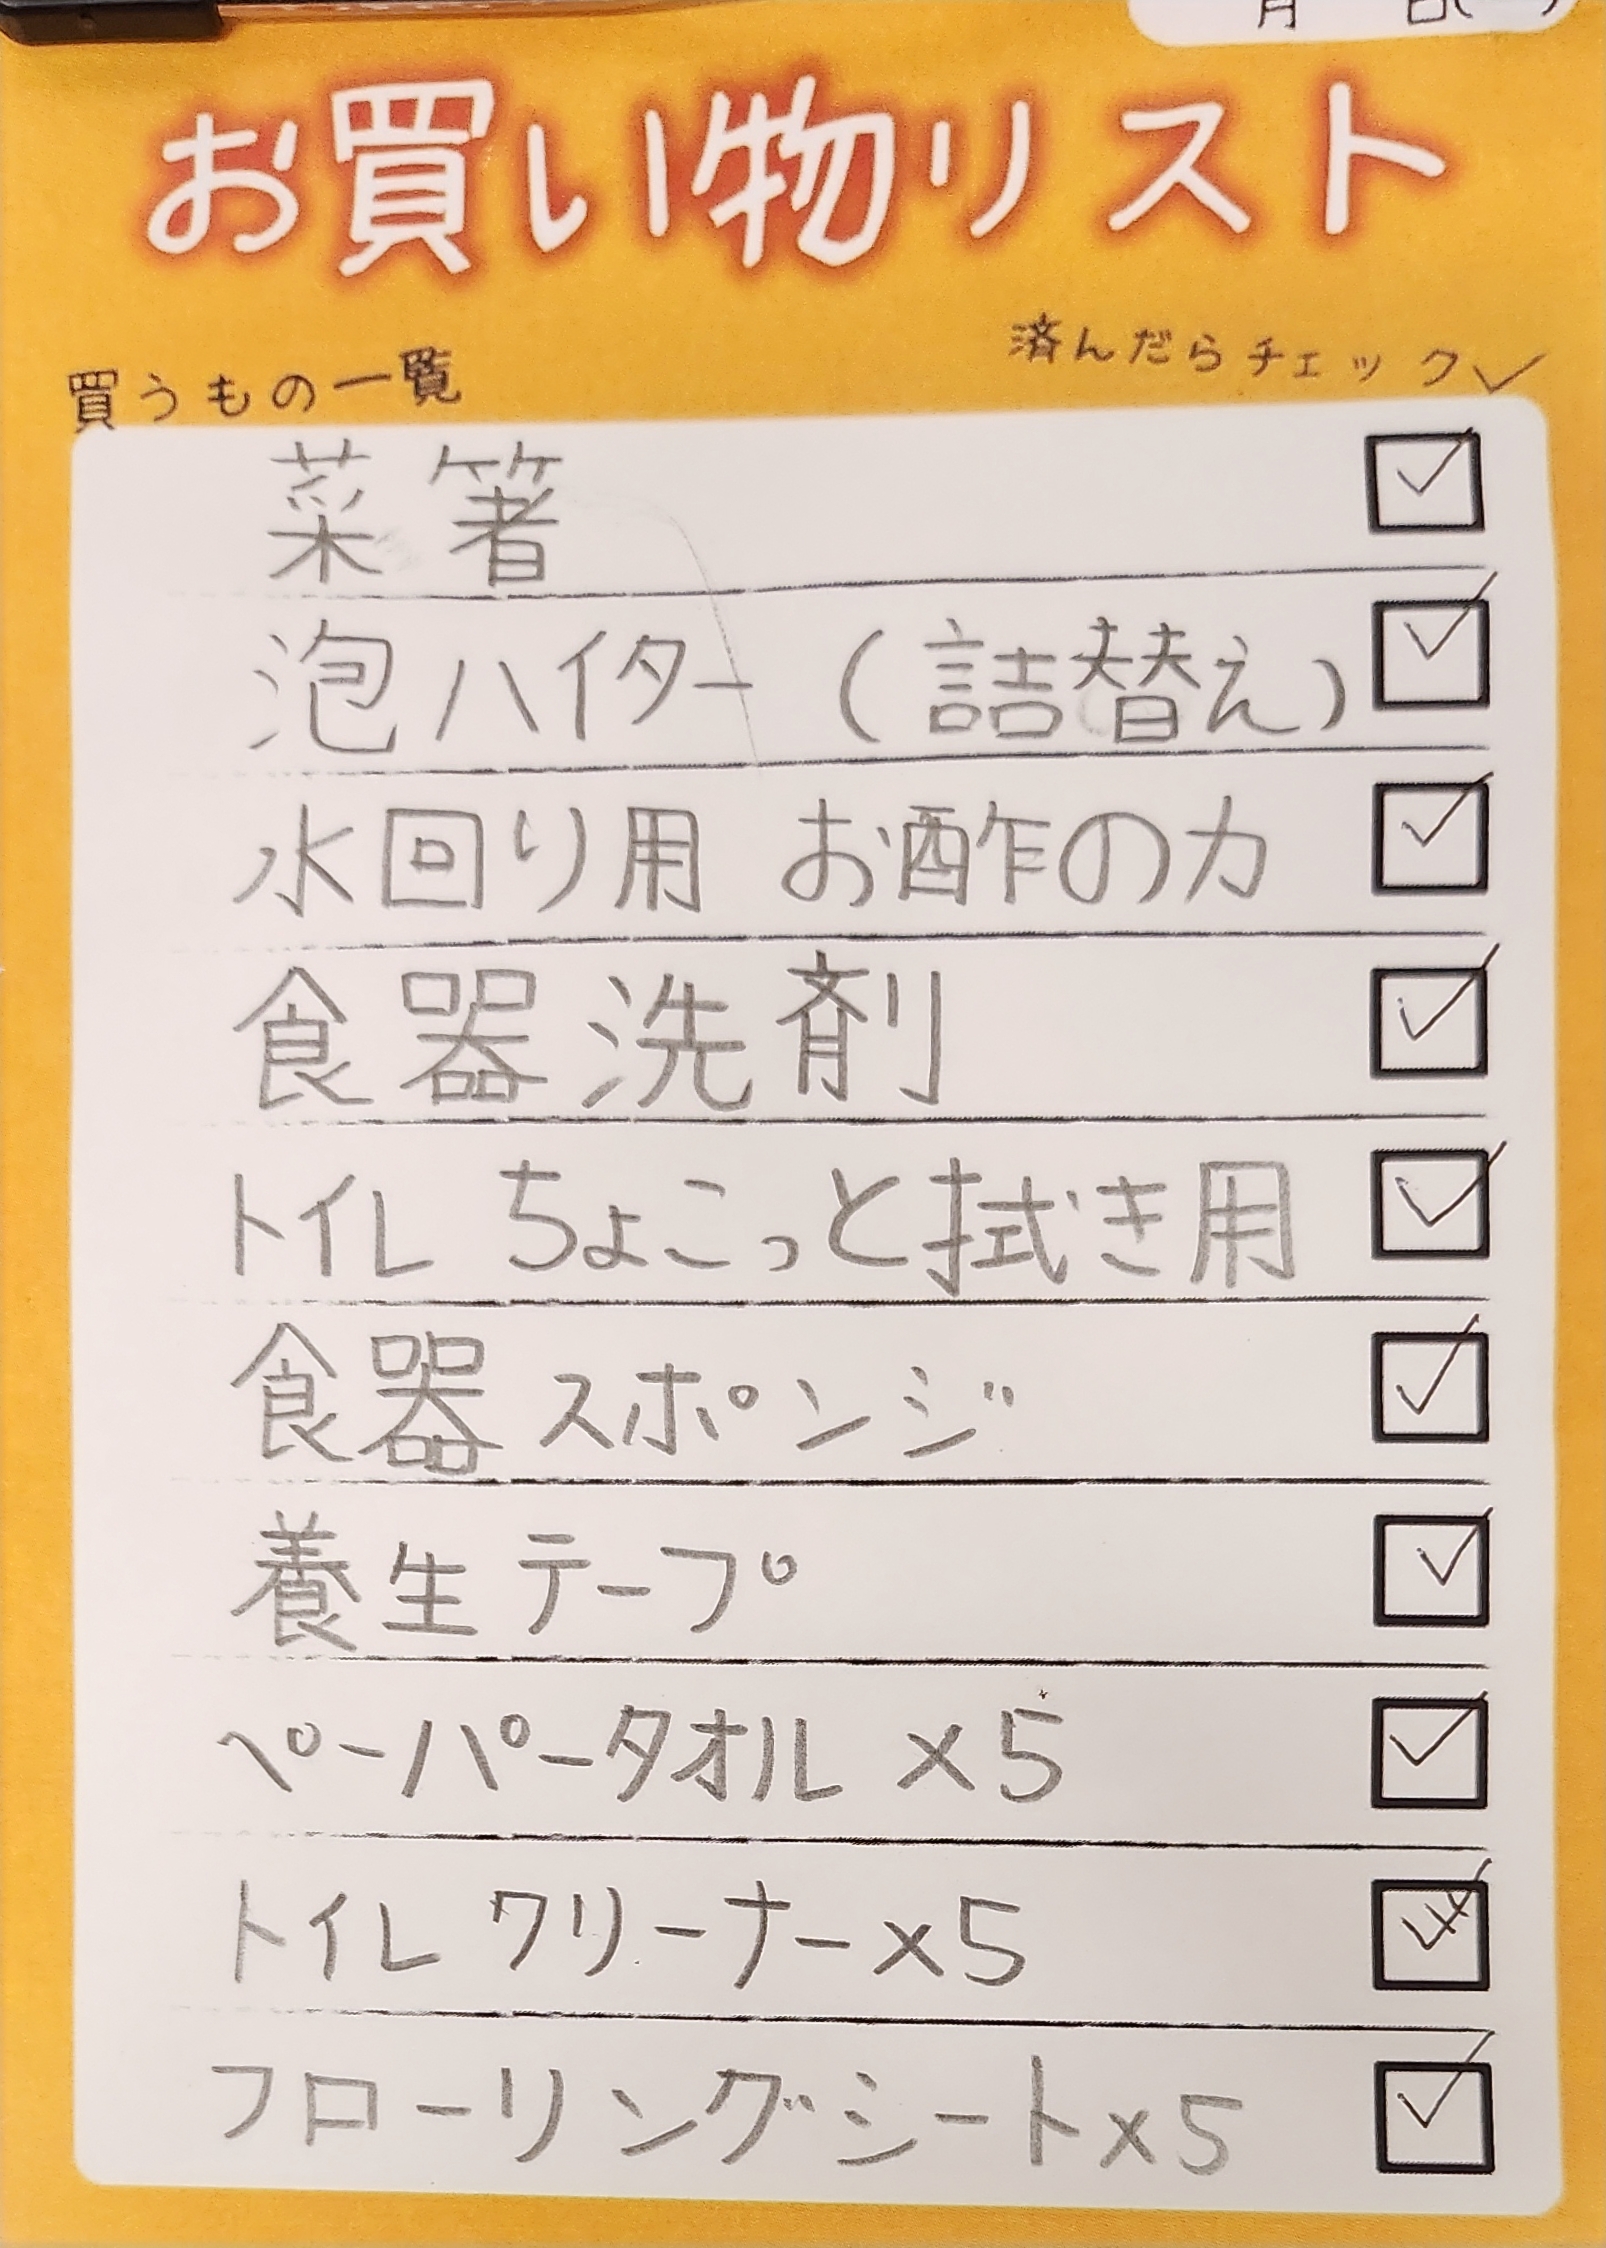 月 日( )
お買い物リスト
済んだらチェック✓
買うもの一覧
菜箸
泡ハイター(詰替え)
水回り用 お酢の力
食器洗剤
トイレ ちょこっと拭き用
食器スポンジ
養生テープ
ペーパータオル ×5
トイレクリーナー×5
フローリングシート×5